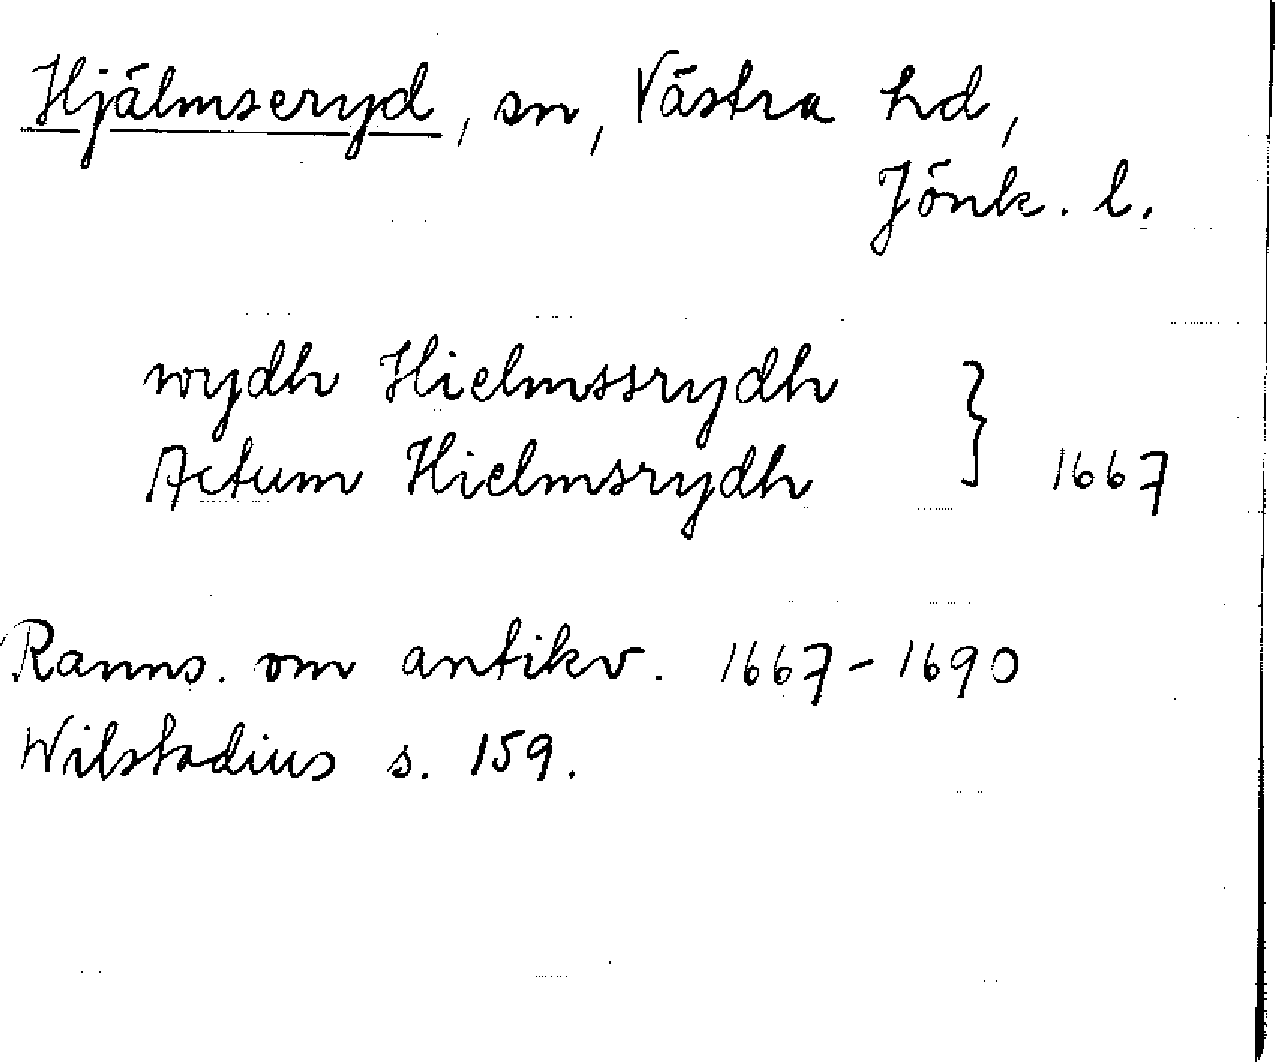 Hjälmseryd, sn, Västra hd,
Jönk. l.
wydh Hielmssrydh
Actum Hielmsrydh } 1667
Ranns. om antikv. 1667-1690
Wilstadius s. 159.